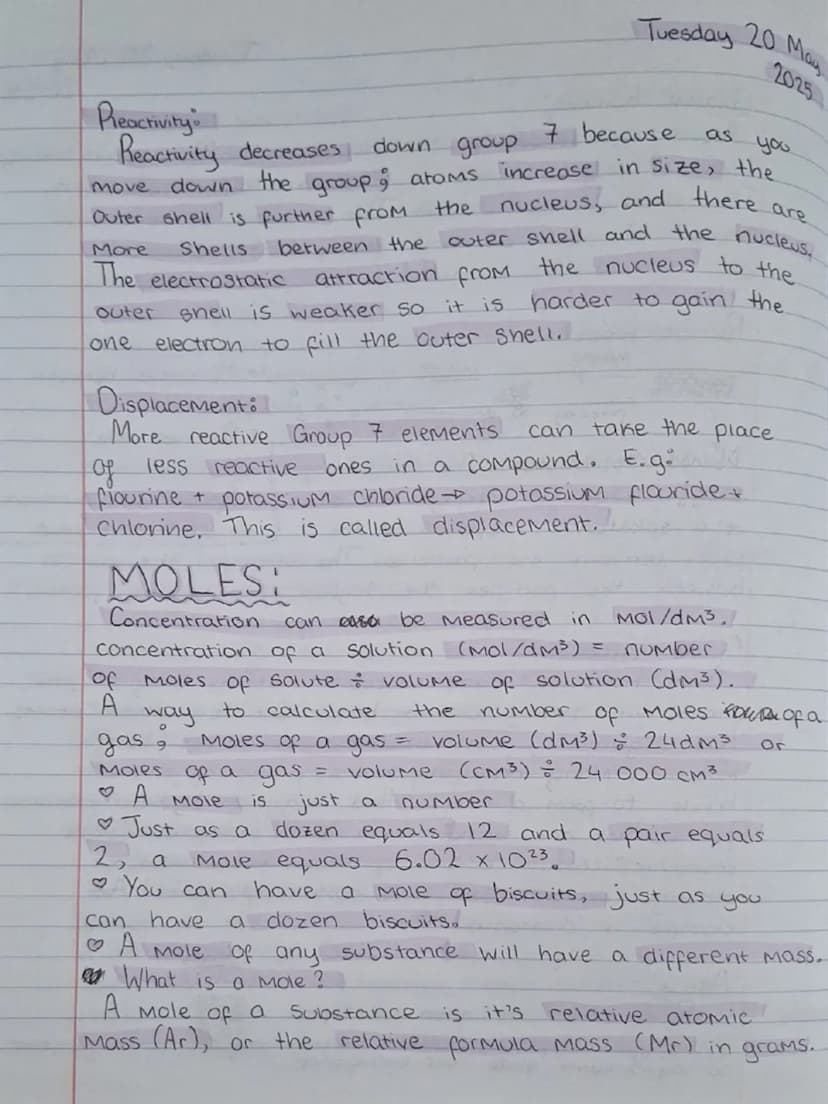 Tuesday 20 May
2025
Reactivity:
Reactivity decreases down group 7 because as you
move down the group; atoms increase in size, the
outer shell is further from the nucleus, and there are
more shells between the outer shell and the nucleus.
The electrostatic attraction from the nucleus to the
outer shell is weaker so it is harder to gain the
one electron to fill the outer shell.
Displacement:
More reactive Group 7 elements can take the place
of less reactive ones in a compound. E.g:
flourine + potassium chloride → potassium flouride +
chlorine. This is called displacement.
MOLES:
Concentration can be measured in mol/dm³.
concentration of a solution (mol/dm³) = number
of moles of solute ÷ volume of solution (dm³).
A way to calculate the number of moles of a
gas; moles of a gas = volume (dm³) ÷ 24dm³ or
moles of a gas = volume (cm³) ÷ 24 000 cm³
♡ A mole is just a number
♡ Just as a dozen equals 12 and a pair equals
2, a mole equals 6.02 × 10²³.
♡ You can have a mole of biscuits, just as you
can have a dozen biscuits.
♡ A mole of any substance will have a different mass.
What is a mole?
A mole of a substance is it's relative atomic
mass (Ar), or the relative formula mass (Mr) in grams.